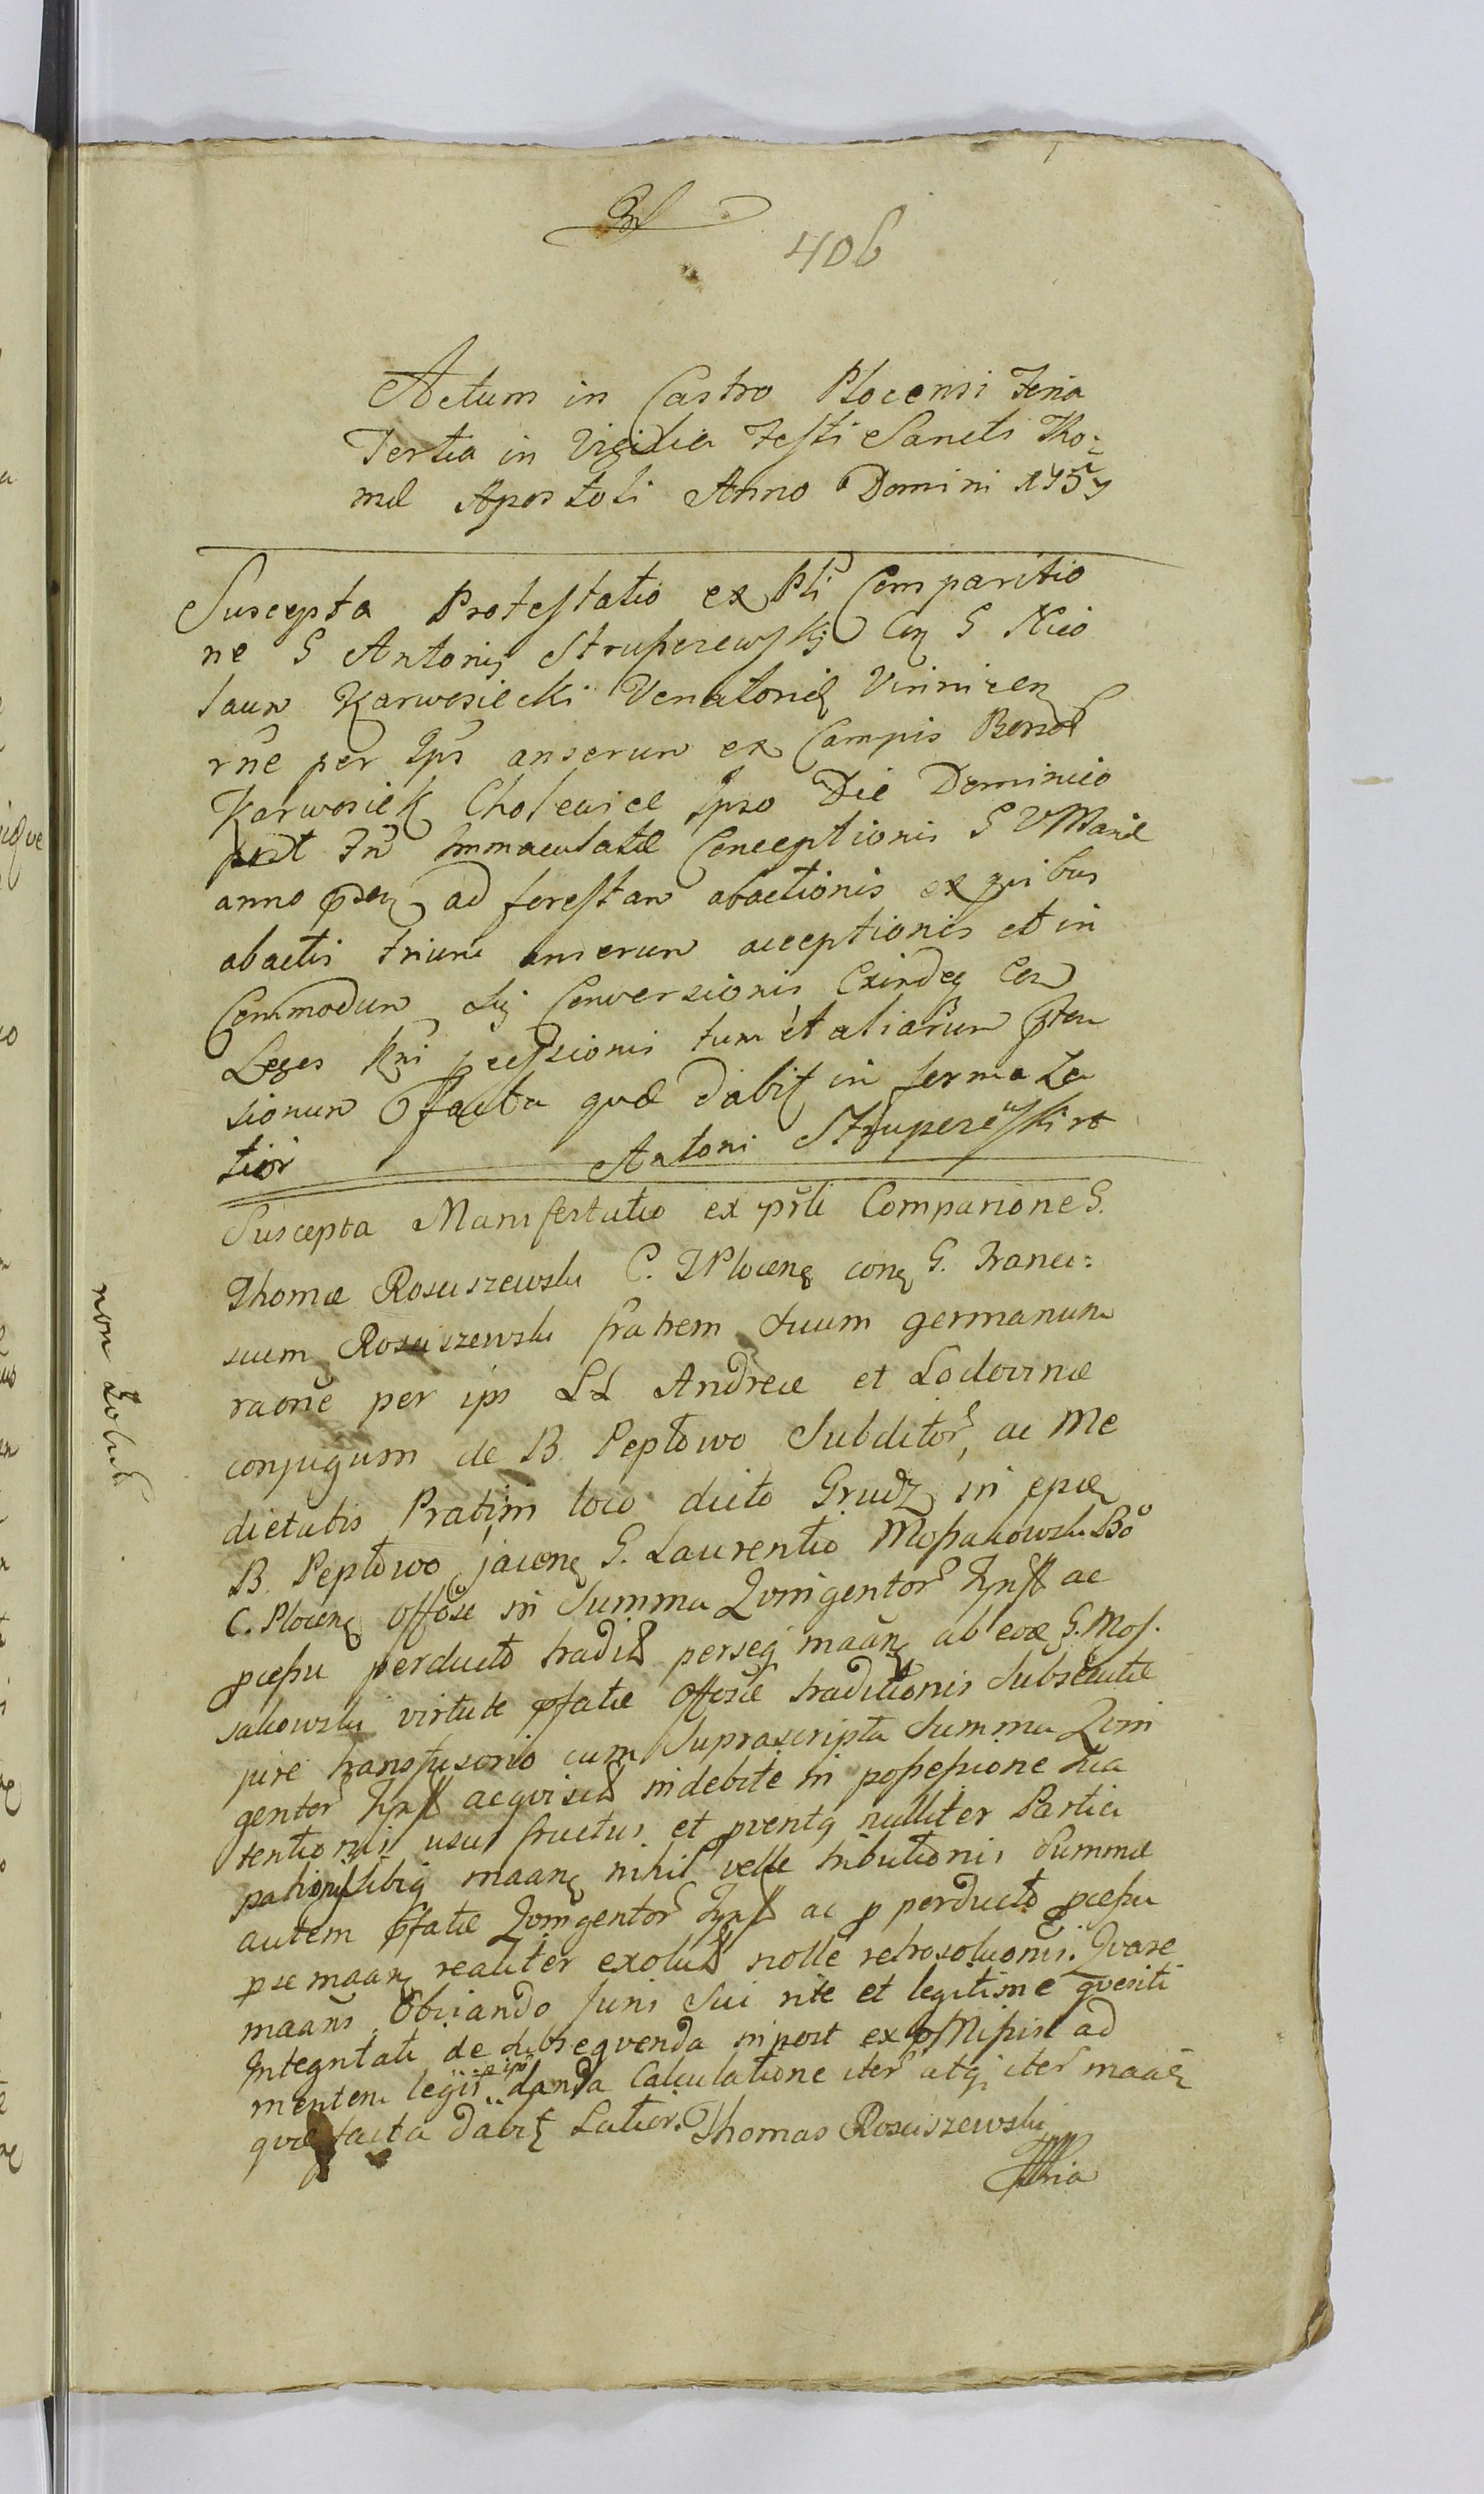 406
Actum in Castro Plocensi Feria
Tertia in Vigilia Festi Sancti Tho=
mæ Apostoli Anno Domini 1757
Suscepta Protestatio ex Pli Comparitio
ne G Antonij Struperewskj Con G Nico
laum Karwosiecki Venatoriæ Vinnicen
rne per Ips anserum ex Campis Bonor
Karwosiek Cholewice Ipso Die Dominico
post Fm Immaculatæ Conceptionis S V Mariæ
anno ad forestam abactionis ex quibus
abactis trium anserum acceptionis et in
Commodum Sui Conversionis Exindeq Con
Leges Rni cessionis tum et aliarum
sionum facta quæ dabit in forma La
tior Antoni Struperewski
Suscepta Manifestatio ex prsti Comparione G.
Thomæ Rosciszewski C. T Plocens con G. Franci=
scum Rosciszewski fratrem Suum germanum
raone per ips LL Andreæ et Lodovinæ
conjugum de B. Peplowo Subditor, ac Me
dietatis Prati in loco dicto Grudz in
B. Peplowo jacen G. Laurentio Mossakowski
C. Plocens offose in Summa Quingentor ac
pcessu perducto tradit perseq maan ab eod G. Mos.
sakowski virtute pfatæ offosæ traditionis Subsecutæ
jure transfusorio cum Suprascripta Summa Quin
gentor acquisit indebite in possessione sua
tentionis usus fructus et pvent nulliter Partici
pationis sibiq maan nihil velle tributionis Summæ
autem pfatæ Quingentor ac p perducto pcessu
p se maan realiter exolut nolle retrosoluonis. Quare
maans Obviando Juris Sui rite et legitime quesiti
Integritati de subsequenda in post ex
mentem legis danda Calculatione iter atq iter maan
quæ facta dabit Latior. Thomas Rosciszewski
non solut